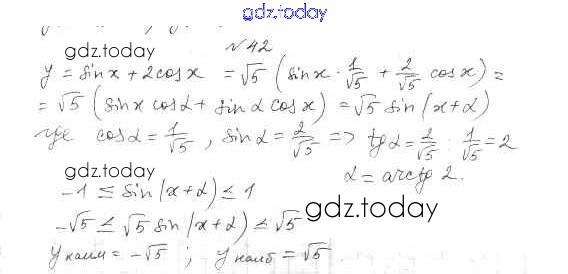 gdz.today
gdz.today
№42
y = sin x + 2cos x = √5 (sin x · 1/√5 + 2/√5 cos x) =
= √5 (sin x cos α + sin α cos x) = √5 sin(x+α)
где cos α = 1/√5, sin α = 2/√5 => tg α = 2/√5 : 1/√5 = 2
gdz.today
α = arctg 2.
-1 ≤ sin(x+α) ≤ 1
gdz.today
-√5 ≤ √5 sin(x+α) ≤ √5
y наим = -√5 ; y наиб = √5.